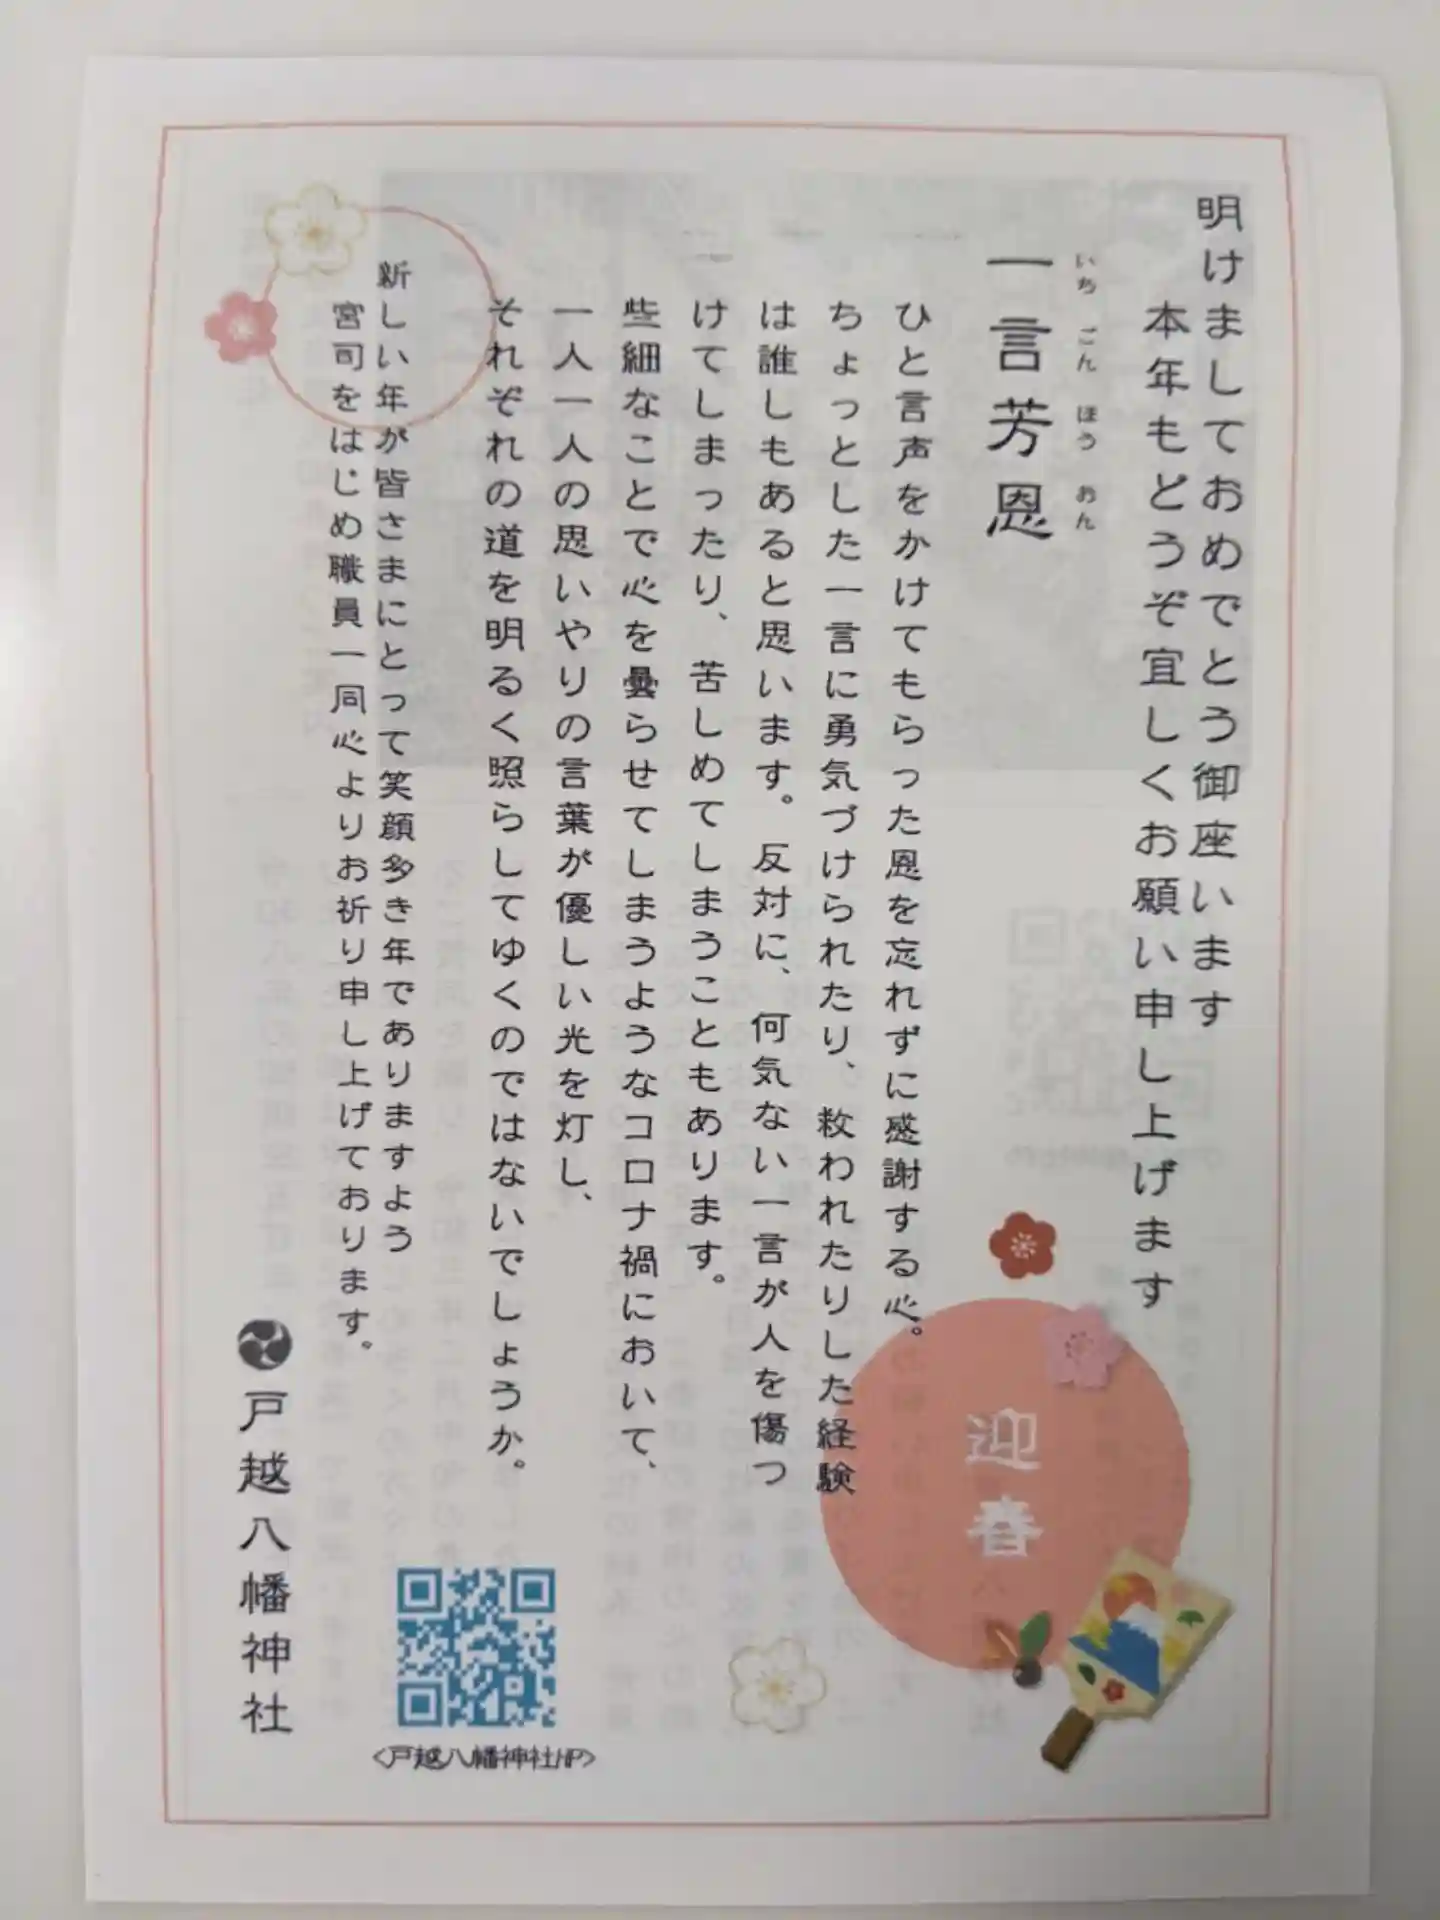 明けましておめでとう御座います
本年もどうぞ宜しくお願い申し上げます
いち ごん ほう おん
一言芳恩
ひと言声をかけてもらった恩を忘れずに感謝する心。
ちょっとした一言に勇気づけられたり、救われたりした経験
は誰しもあると思います。反対に、何気ない一言が人を傷つ
けてしまったり、苦しめてしまうこともあります。
些細なことで心を曇らせてしまうようなコロナ禍において、
一人一人の思いやりの言葉が優しい光を灯し、
それぞれの道を明るく照らしてゆくのではないでしょうか。
新しい年が皆さまにとって笑顔多き年でありますよう
宮司をはじめ職員一同心よりお祈り申し上げております。
迎春
戸越八幡神社
<戸越八幡神社HP>